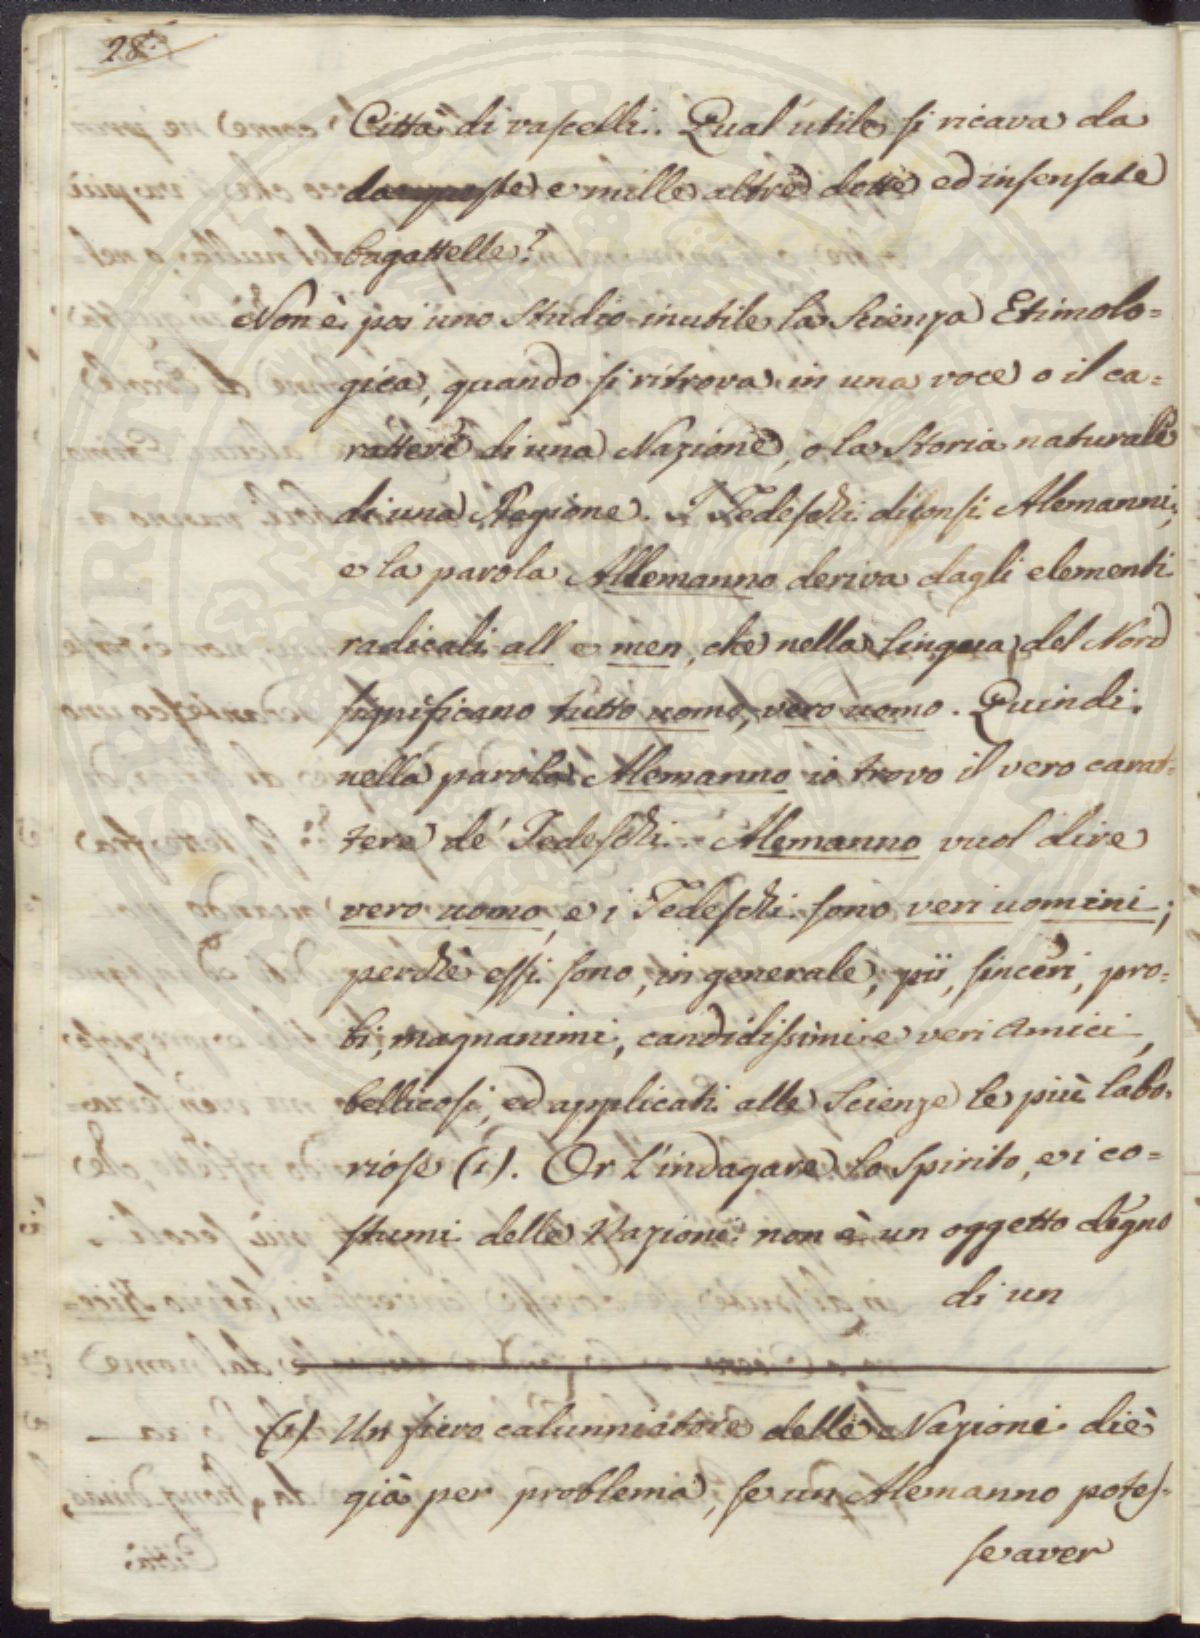 28.
Città di vascelli. Qual'utile si ricava da
e mille altre dotte ed insensate
bagattelle?
Non è poi uno studio inutile la Scienza Etimolo=
gica, quando si ritrova in una voce o il ca=
rattere di una Nazione, o la Storia naturale
di una Regione. I Tedeschi diconsi Alemanni;
e la parola Allemanno deriva dagli elementi
radicali all e men, che nella lingua del Nord
significano tutto uomo, vero uomo. Quindi
nella parola Alemanno io trovo il vero carat=
tere de' Tedeschi. Alemanno vuol dire
vero uomo, e i Tedeschi sono veri uomini;
perchè essi sono, in generale, pii, sinceri, pro=
bi, magnanimi, candidissimi e veri Amici,
bellicosi, ed applicati alle Scienze le più labo=
riose (1). Or l'indagare lo Spirito, e i co=
stumi delle Nazioni non è un oggetto degno
di un
(1) Un fiero calunniatore delle Nazioni diè
già per problema, se un Alemanno potes=
se aver